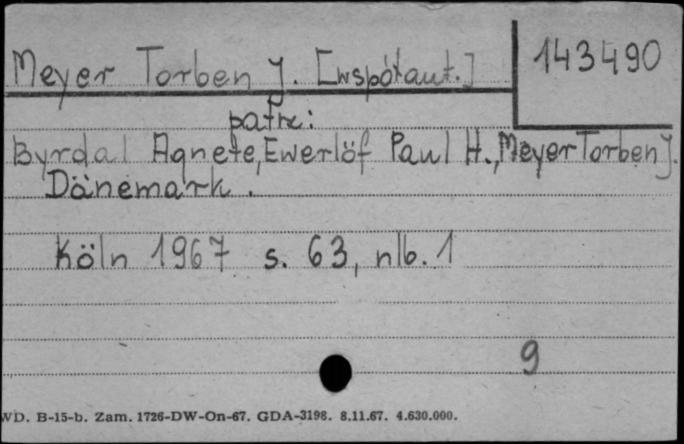 Meyer Torben J. [współaut.]
143490
patrz:
Byrdal Agnete, Ewerlöf Paul H., Meyer Torben J.
Dänemark.
Köln 1967 s. 63, nlb. 1
9
WD. B-15-b. Zam. 1726-DW-On-67. GDA-3198. 8.11.67. 4.630.000.